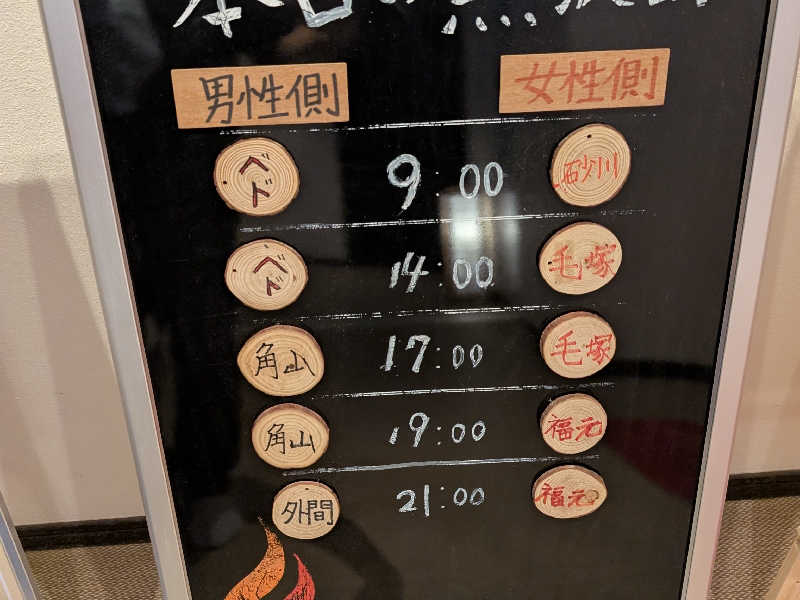 男性側 女性側
ベド 9:00 砂川
ベド 14:00 毛塚
角山 17:00 毛塚
角山 19:00 福元
外間 21:00 福元